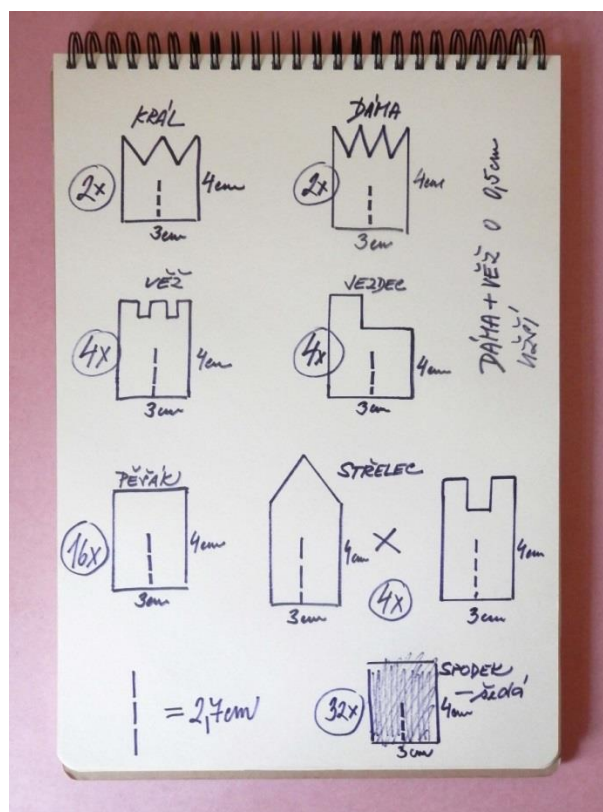 KRÁL
2x
4cm
3cm
DÁMA
2x
4cm
3cm
DÁMA + VĚŽ O 0,5cm
UŽŠÍ
VĚŽ
4x
4cm
3cm
JEZDEC
4x
4cm
3cm
PĚŠÁK
16x
4cm
3cm
STŘELEC
4cm
3cm
X
4x
4cm
3cm
= 2,7cm
SPODEK
- šedá
32x
4cm
3cm